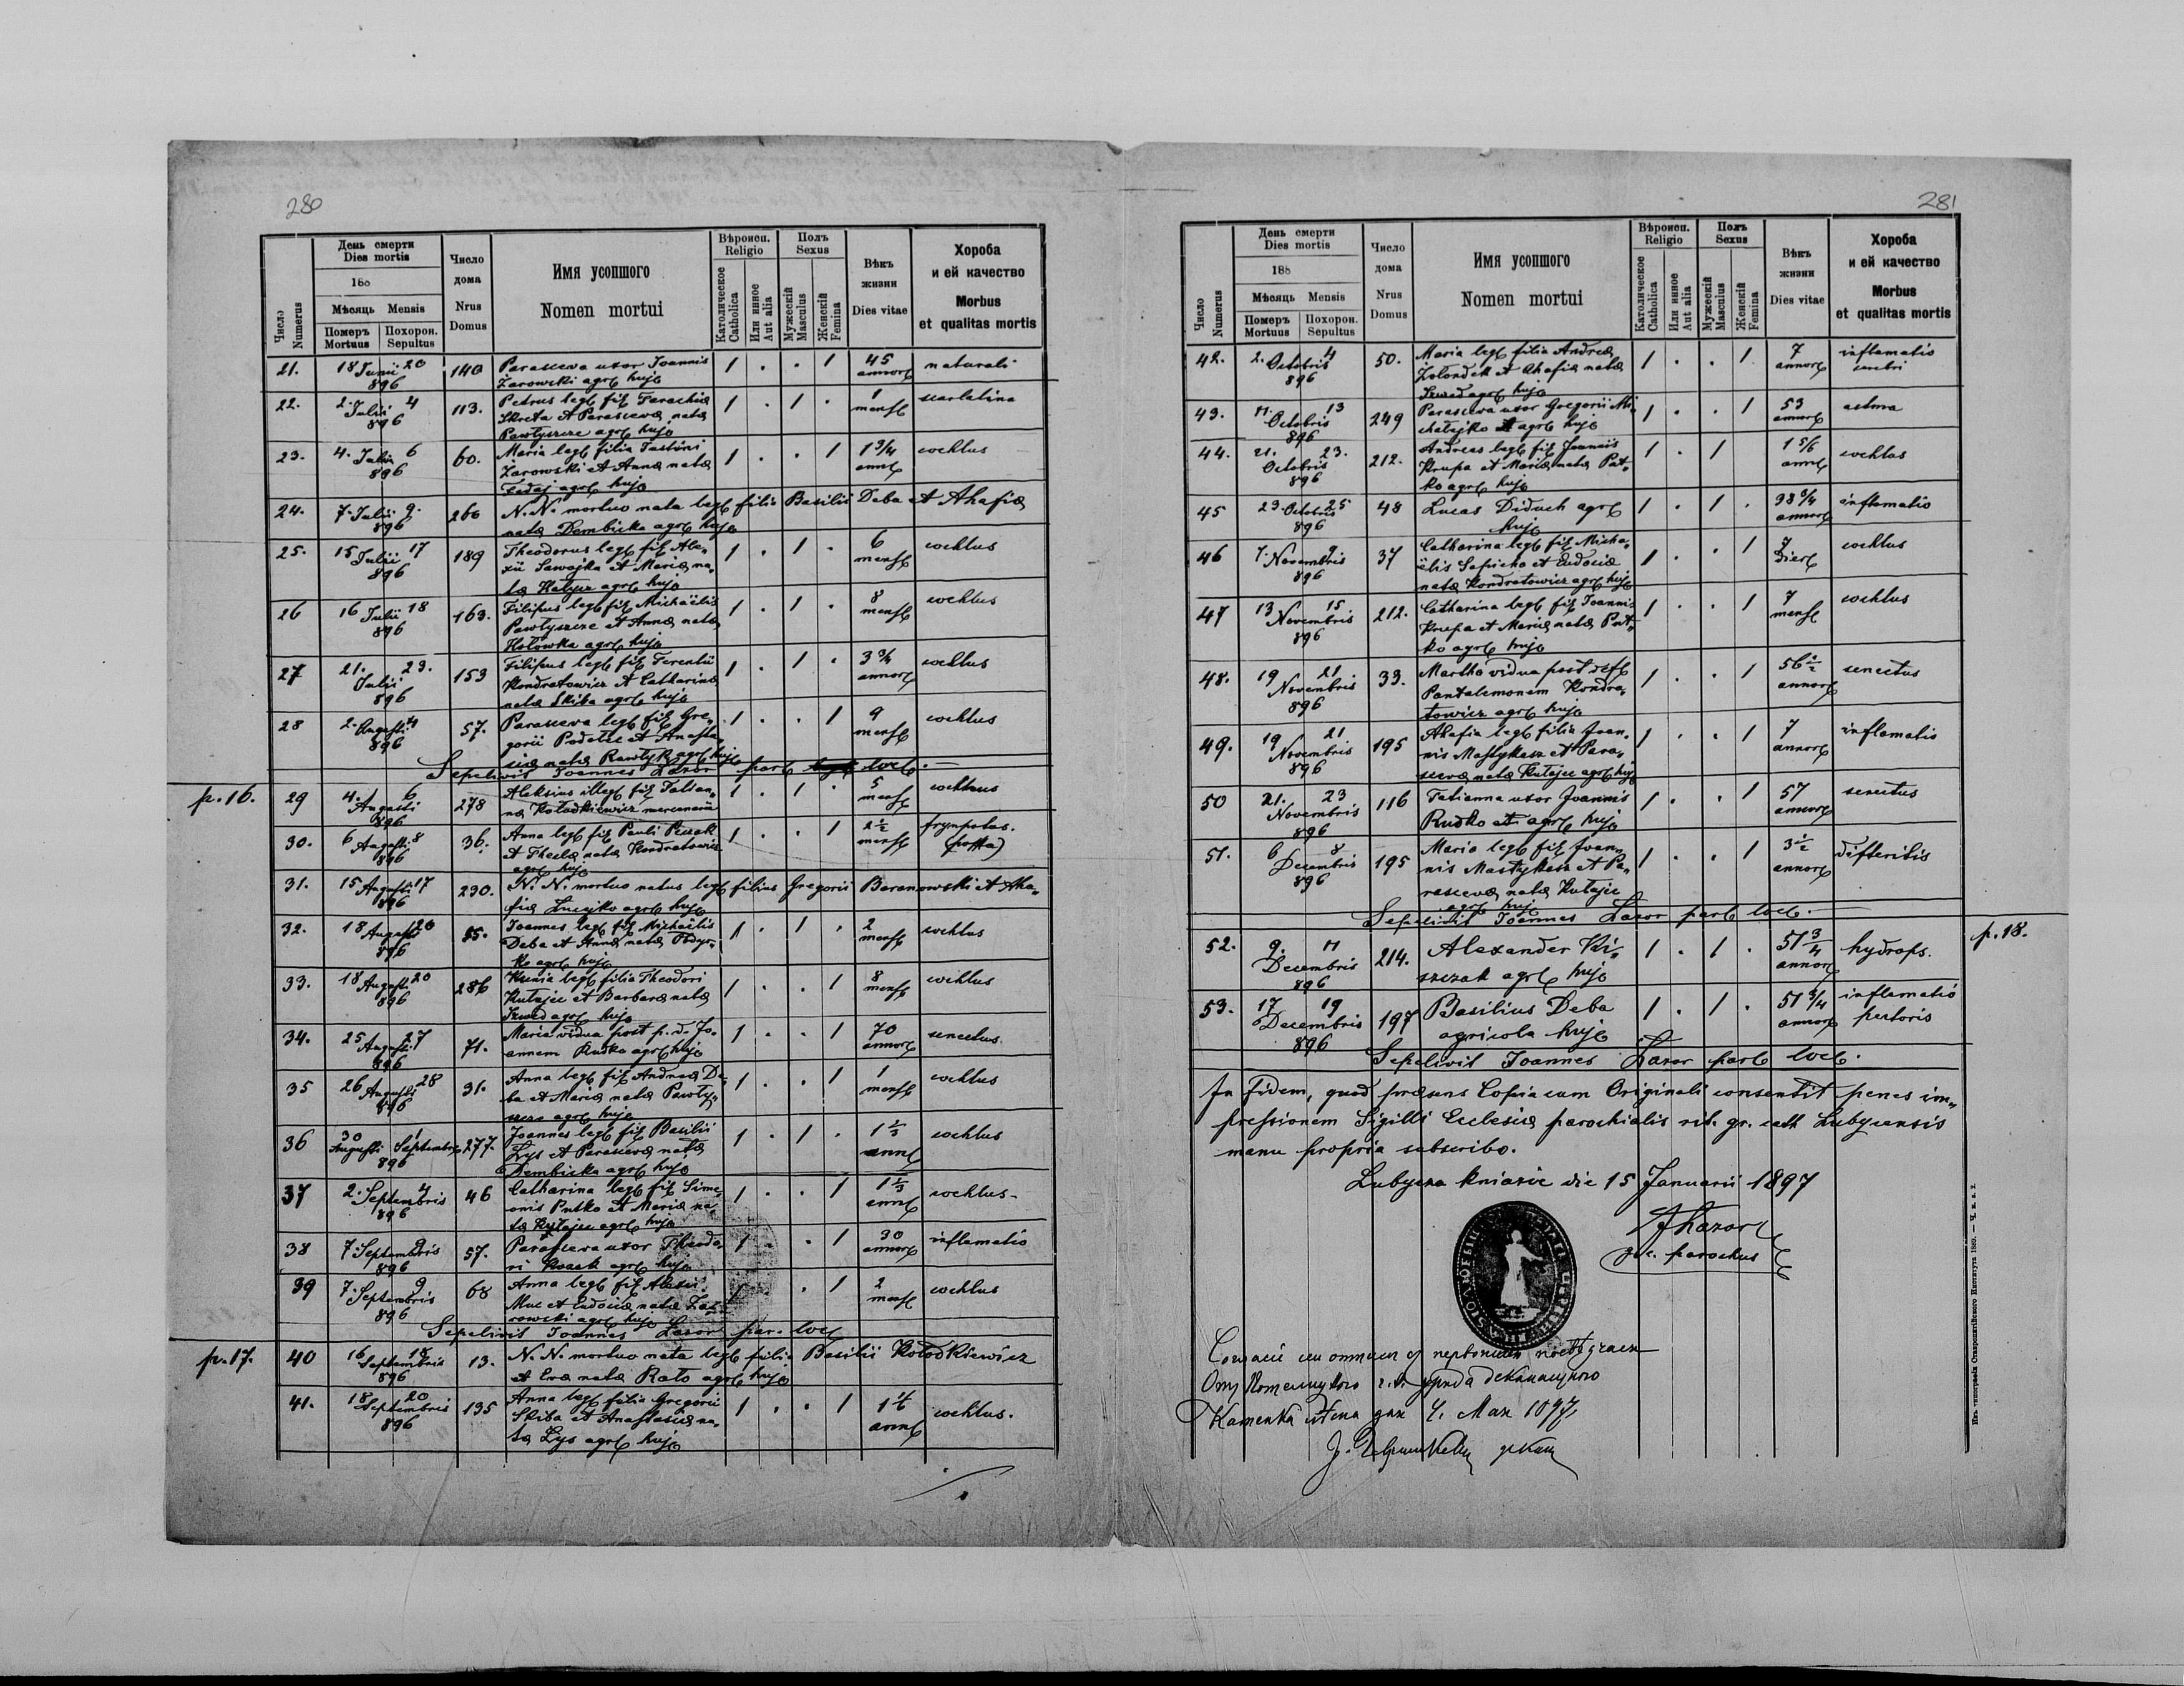 280
Число Numerus
День смерти
Dies mortis
188
Мѣсяць Mensis
Померъ Mortuus
Похорон. Sepultus
Число дома
Nrus Domus
Имя усопшого
Nomen mortui
Вѣроисп.
Religio
Католическое Catholica
Или инное Aut alia
Полъ
Sexus
Мужескій Masculus
Женскій Femina
Вѣкъ жизни
Dies vitae
Хороба
и ей качество
Morbus
et qualitas mortis
21. 18 Junii 20 896 140 Parasceva uxor Joannis 1 . . 1 45 annor naturali
Żarowski agr huj
22. 2. Julii 4 896 113. Petrus leg fil Parachia 1 . 1 . 1 mens scarlatina
Skreta et Parasceva nata
Pawłyszcze agr huj
23. 4. Julii 6 896 60. Maria leg filia Justini 1 . . 1 1 3/4 ann cochlus
Żarowski et Anna nata
Fedaj agr huj
24. 7. Julii 9. 896 260 N. N. mortuo nata leg filia Basilii Deba et Ahafia
nata Dembicka agr huj
25. 15 Julii 17 896 189 Theodorus leg fil Ale„ 1 . 1 . 6 mens cochlus
xii Sawojka et Maria na„
ta Halycz agr huj
26 16 Julii 18 896 163. Filipus leg fil Michaëlis 1 . 1 . 8 mens cochlus
Pawłyszcze et Anna nata
Hołowka agr huj
27 21. Julii 23. 896 153 Filipus leg fil Terentii 1 . 1 . 3 3/4 annor cochlus
Kondratowicz et Catharina
nata Skiba agr huj
28 2. Augusti 4 896 57. Parasceva leg fil Gre„ 1 . . 1 9 mens cochlus
gorii Podolec et Anasta„
sia nata Pawłyk agr huj
Sepelivit Joannes Lazor par loc.
p. 16.
29 4. Augusti 6 896 278 Aleksius illeg fil Tatian„ 1 . 1 . 5 mens cochlus
na Kołodkiewicz mercenaria
30. 6 Augusti 8 896 36. Anna leg fil Pauli Peczak 1 . . 1 2 1/2 mens
et Thecla nata Kondratowicz
agr huj
31. 15 Augusti 17 896 230. N. N. mortuo natus leg filius Gregorii Baranowski et Aha„
fia Lucejko agr huj
32. 18 Augusti 20 896 55. Joannes leg fil Michaëlis 1 . 1 . 2 mens cochlus
Deba et Anna nata
ko agr huj
33. 18 Augusti 20 896 286 Ksenia leg filia Theodori 1 . . 1 8 mens cochlus
Kułajec et Barbara nata
Szwed agr huj
34. 25 Augusti 27 896 71. Maria vidua post p. d. Jo„ 1 . . 1 70 annor senectus
annem Rudko agr huj
35 26 Augusti 28 896 31. Anna leg fil Andrea De„ 1 . . 1 1 mens cochlus
ba et Maria nata Pawły„
szcze agr huj
36 30 Augusti 1 Septembris 896 277. Joannes leg fil Basilii 1 . 1 . 1 1/2 ann cochlus
Lys et Parasceva nata
Dembicka agr huj
37 2. Septembris 4 896 46 Catharina leg fil Sime„ 1 . . 1 1 1/3 ann cochlus
onis Putko et Maria na„
ta Kułajec agr huj
38 7. Septembris 9 896 57. Parasceva uxor Theodo„ 1 . . 1 30 annor inflamatio
ri Kozak agr huj
39 7. Septembris 9 896 68 Anna leg fil Alexii . . 1 2 mens cochlus
Muc et Eudocia nata Ża„
rowski agr huj
Sepelivit Joannes Lazor par. loc
p. 17.
40 16 Septembris 18 896 13. N. N. mortuo nata leg filia Basilii Kołodkiewicz
et Eva nata Rato agr huj
41. 18 Septembris 20 896 135 Anna leg filia Gregorii 1 . . 1 ann cochlus.
Skiba et Anastasia na„
ta Lys agr huj
281
Число Numerus
День смерти
Dies mortis
188
Мѣсяць Mensis
Померъ Mortuus
Похорон. Sepultus
Число дома
Nrus Domus
Имя усопшого
Nomen mortui
Вѣроисп.
Religio
Католическое Catholica
Или инное Aut alia
Полъ
Sexus
Мужескій Masculus
Женскій Femina
Вѣкъ жизни
Dies vitae
Хороба
и ей качество
Morbus
et qualitas mortis
42. 2. Octobris 4 896 50. Maria leg filia Andrea 1 . . 1 7 annor inflamatio cerebri
Zolondek et Ahafia nata
Szwed agr huj
43. 11. Octobris 13 896 249 Parasceva uxor Gregorii Mi„ 1 . . 1 53 annor astma
chalejko agr huj
44. 21. Octobris 23. 896 212. Andreas leg fil Joannis 1 . 1 1 5/6 ann cochlus
Krupa et Maria nata Put„
ko agr huj
45 23. Octobris 25 896 48 Lucas Diduch agr 1 . 1 . 38 3/4 annor inflamatio
huj
46 7. Novembris 9 896 37 Catharina leg fil Micha„ 1 . . 1 7 dier cochlus
ëlis Sapieha et Eudocia
nata Kondratowicz agr huj
47 13 Novembris 15 896 212. Catharina leg fil Joannis 1 . . 1 7 mens cochlus
Krupa et Maria nata Put„
ko agr huj
48. 19 Novembris 21 896 33. Martha vidua post def 1 . . 1 56 1/2 annor senectus
Pantalemonem Kondra„
towicz agr huj
49. 19 Novembris 21 896 195 Ahafia leg filia Joan„ 1 . . 1 7 annor inflamatio
nis Mastykasz et Para„
sceva nata Kułajec agr huj
50 21. Novembris 23 896 116 Tatianna uxor Joannis 1 . . 1 57 annor senectus
Rudko agr huj
51. 6 Decembris 8 896 195 Maria leg fil Joan„ 1 . . 1 3 1/2 annor difteritis
nis Mastykasz et Pa„
rasceva nata Kułajec
agr huj
Sepelivit Joannes Lazor par loc.
p. 18.
52. 9. Decembris 11 896 214. Alexander Ki„ 1 . 1 . 51 3/4 annor hydrops.
szczak agr huj
53. 17 Decembris 19 896 197 Basilius Deba 1 . 1 . 51 3/4 annor inflamatio pectoris
agricola huj
Sepelivit Joannes Lazor par loc.
In fidem, quod præsens Copia cum Originali consentit penes im„
pressionem Sigilli Ecclesiæ parochialis rit. gr. cath Lubycensis
manu propria subscribo.
Lubycza kniazie die 15 Januarii 1897
JLazor
gr. c. parochus
Каменка дня 4. Мая 1897
Изъ типографіи Ставропигійского Института 1889.